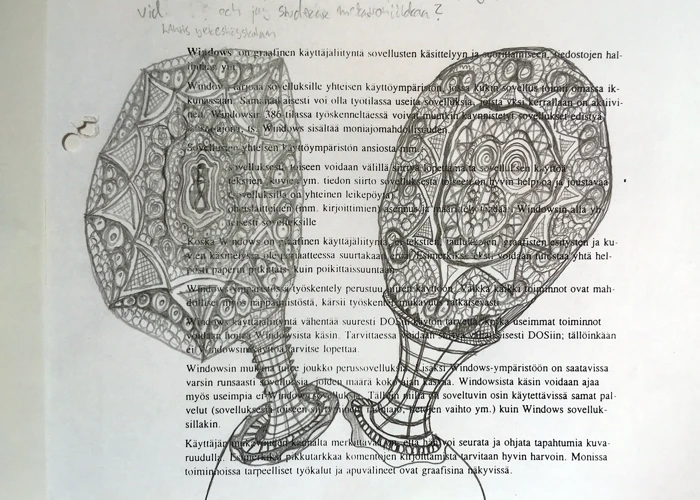 vid och jag studerar
Windows on graafinen käyttäjäliityntä sovellusten käsittelyyn ja suorittamiseen, tiedostojen hal-
Windows tarjoaa sovelluksille yhteisen käyttöympäristön, jossa kukin sovellus toimii omassa ik-
kunassaan. Samanaikaisesti voi olla työtilassa useita sovelluksia, joista yksi kerrallaan on aktiivi-
nen. Windowsin 386-tilassa työskenneltäessä voivat muutkin käynnistetyt sovellukset edistyä
ts. Windows sisältää moniajomahdollisuuden.
Sovellusten yhteisen käyttöympäristön ansiosta mm.
sovelluksesta toiseen voidaan välillä siirtyä lopettamatta sovelluksen käyttöä
tekstien, kuvien ym. tiedon siirto sovelluksesta toiseen on hyvin helppoa ja joustavaa
sovelluksilla on yhteinen leikepöytä
ohjaslaitteiden (mm. kirjoittimien) asennus ja määrittely tehdään Windowsin alla yh-
teisesti sovelluksille
Koska Windows on graafinen käyttäjäliityntä, ei tekstien, taulukoiden, graafisten esitysten ja ku-
vien käsittelystä ole periaatteessa suurtakaan eroa. Esimerkiksi teksti voidaan tulostaa yhtä hel-
posti paperin pitkittäis- kuin poikittaissuuntaan.
Windowsympäristössä työskentely perustuu hiiren käyttöön. Vaikka kaikki toiminnot ovat mah-
dollisia myös näppäimistöstä, kärsii työskentelymukavuus ratkaisevasti.
Windows käyttäjäliityntä vähentää suuresti DOSin käytön tarvetta, koska useimmat toiminnot
voidaan hoitaa Windowsista käsin. Tarvittaessa voidaan siirtyä väliaikaisesti DOSiin; tällöinkään
ei Windowsin käyttöä tarvitse lopettaa.
Windowsin mukana tulee joukko perussovelluksia. Lisäksi Windows-ympäristöön on saatavissa
varsin runsaasti sovelluksia, joiden määrä koko ajan kasvaa. Windowsista käsin voidaan ajaa
myös useimpia ei-Windows sovelluksia. Tällöin niillä on soveltuvin osin käytettävissä samat pal-
velut (sovelluksesta toiseen siirtyminen, moniajo, tietojen vaihto ym.) kuin Windows sovelluk-
sillakin.
Käyttäjän mukavuuden kannalta merkittävää on, että hän voi seurata ja ohjata tapahtumia kuva-
ruudulla. Esimerkiksi pikkutarkkaa komentojen kirjoittamista tarvitaan hyvin harvoin. Monissa
toiminnoissa tarpeelliset työkalut ja apuvälineet ovat graafisina näkyvissä.